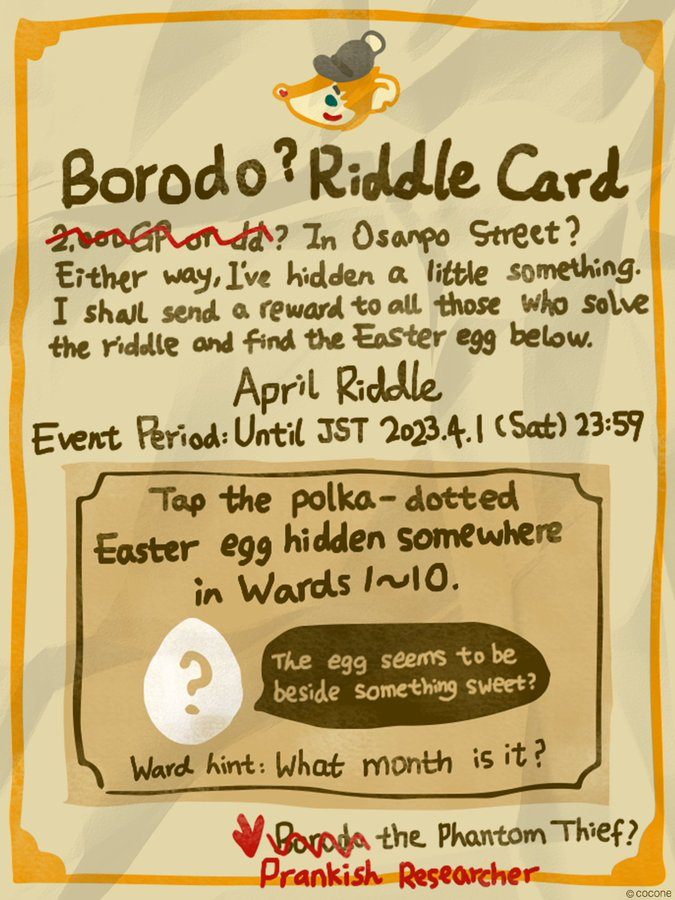 Borodo? Riddle Card
2.000GP or dd? In Osanpo Street?
Either way, I've hidden a little something.
I shall send a reward to all those who solve
the riddle and find the Easter egg below.
April Riddle
Event Period: Until JST 2023.4.1 (Sat) 23:59
Tap the polka-dotted
Easter egg hidden somewhere
in Wards 1~10.
?
The egg seems to be
beside something sweet?
Ward hint: What month is it?
Borodo the Phantom Thief?
Prankish Researcher
© cocone